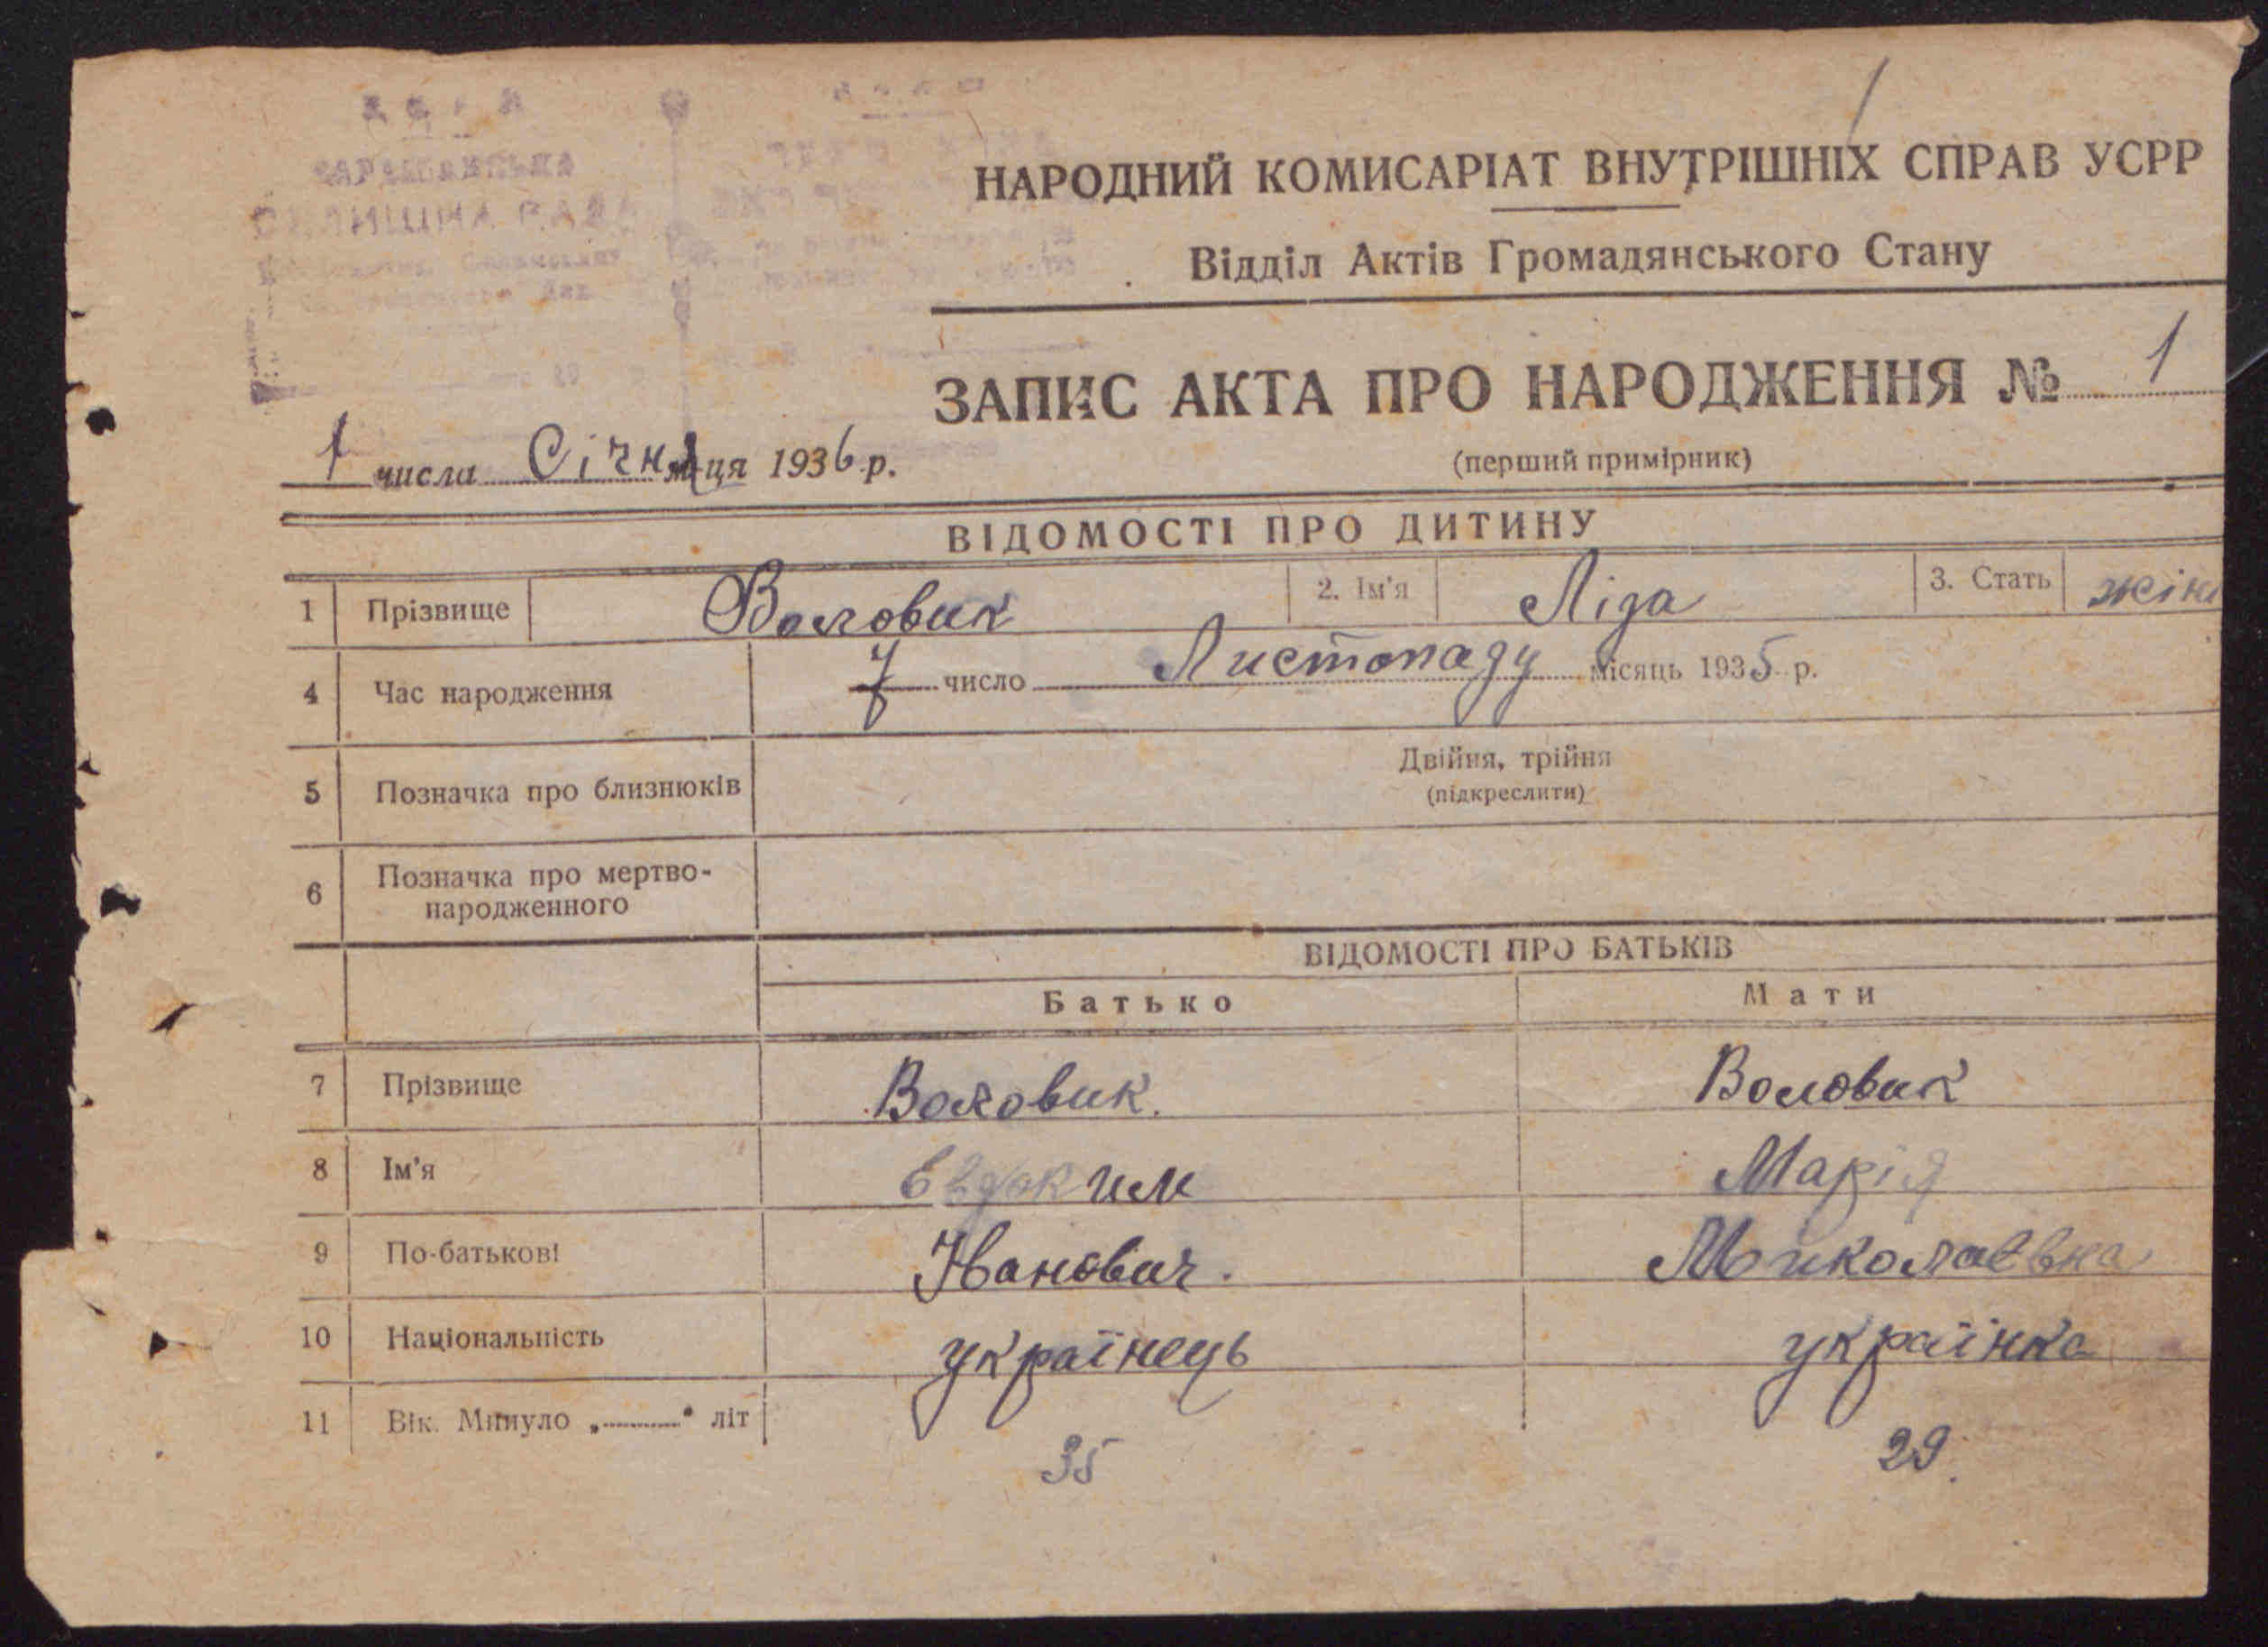 СЕЛИШНА РАДА
НАРОДНИЙ КОМИСАРІАТ ВНУТРІШНІХ СПРАВ УСРР
Відділ Актів Громадянського Стану
ЗАПИС АКТА ПРО НАРОДЖЕННЯ № 1
(перший примірник)
1 числа Січня м-ця 1936 р.
ВІДОМОСТІ ПРО ДИТИНУ
1 Прізвище Воловик 2. Ім'я Ліда 3. Стать жін
4 Час народження 7 число Листопаду місяць 1935 р.
5 Позначка про близнюків Двійня, трійня
(підкреслити)
6 Позначка про мертво-
народженного
ВІДОМОСТІ ПРО БАТЬКІВ
Батько Мати
7 Прізвище Воловик. Воловик
8 Ім'я Евдоким Марія
9 По-батькові Іванович. Миколаевна
10 Національність українець українка
11 Вік. Минуло „ “ літ 35 29.